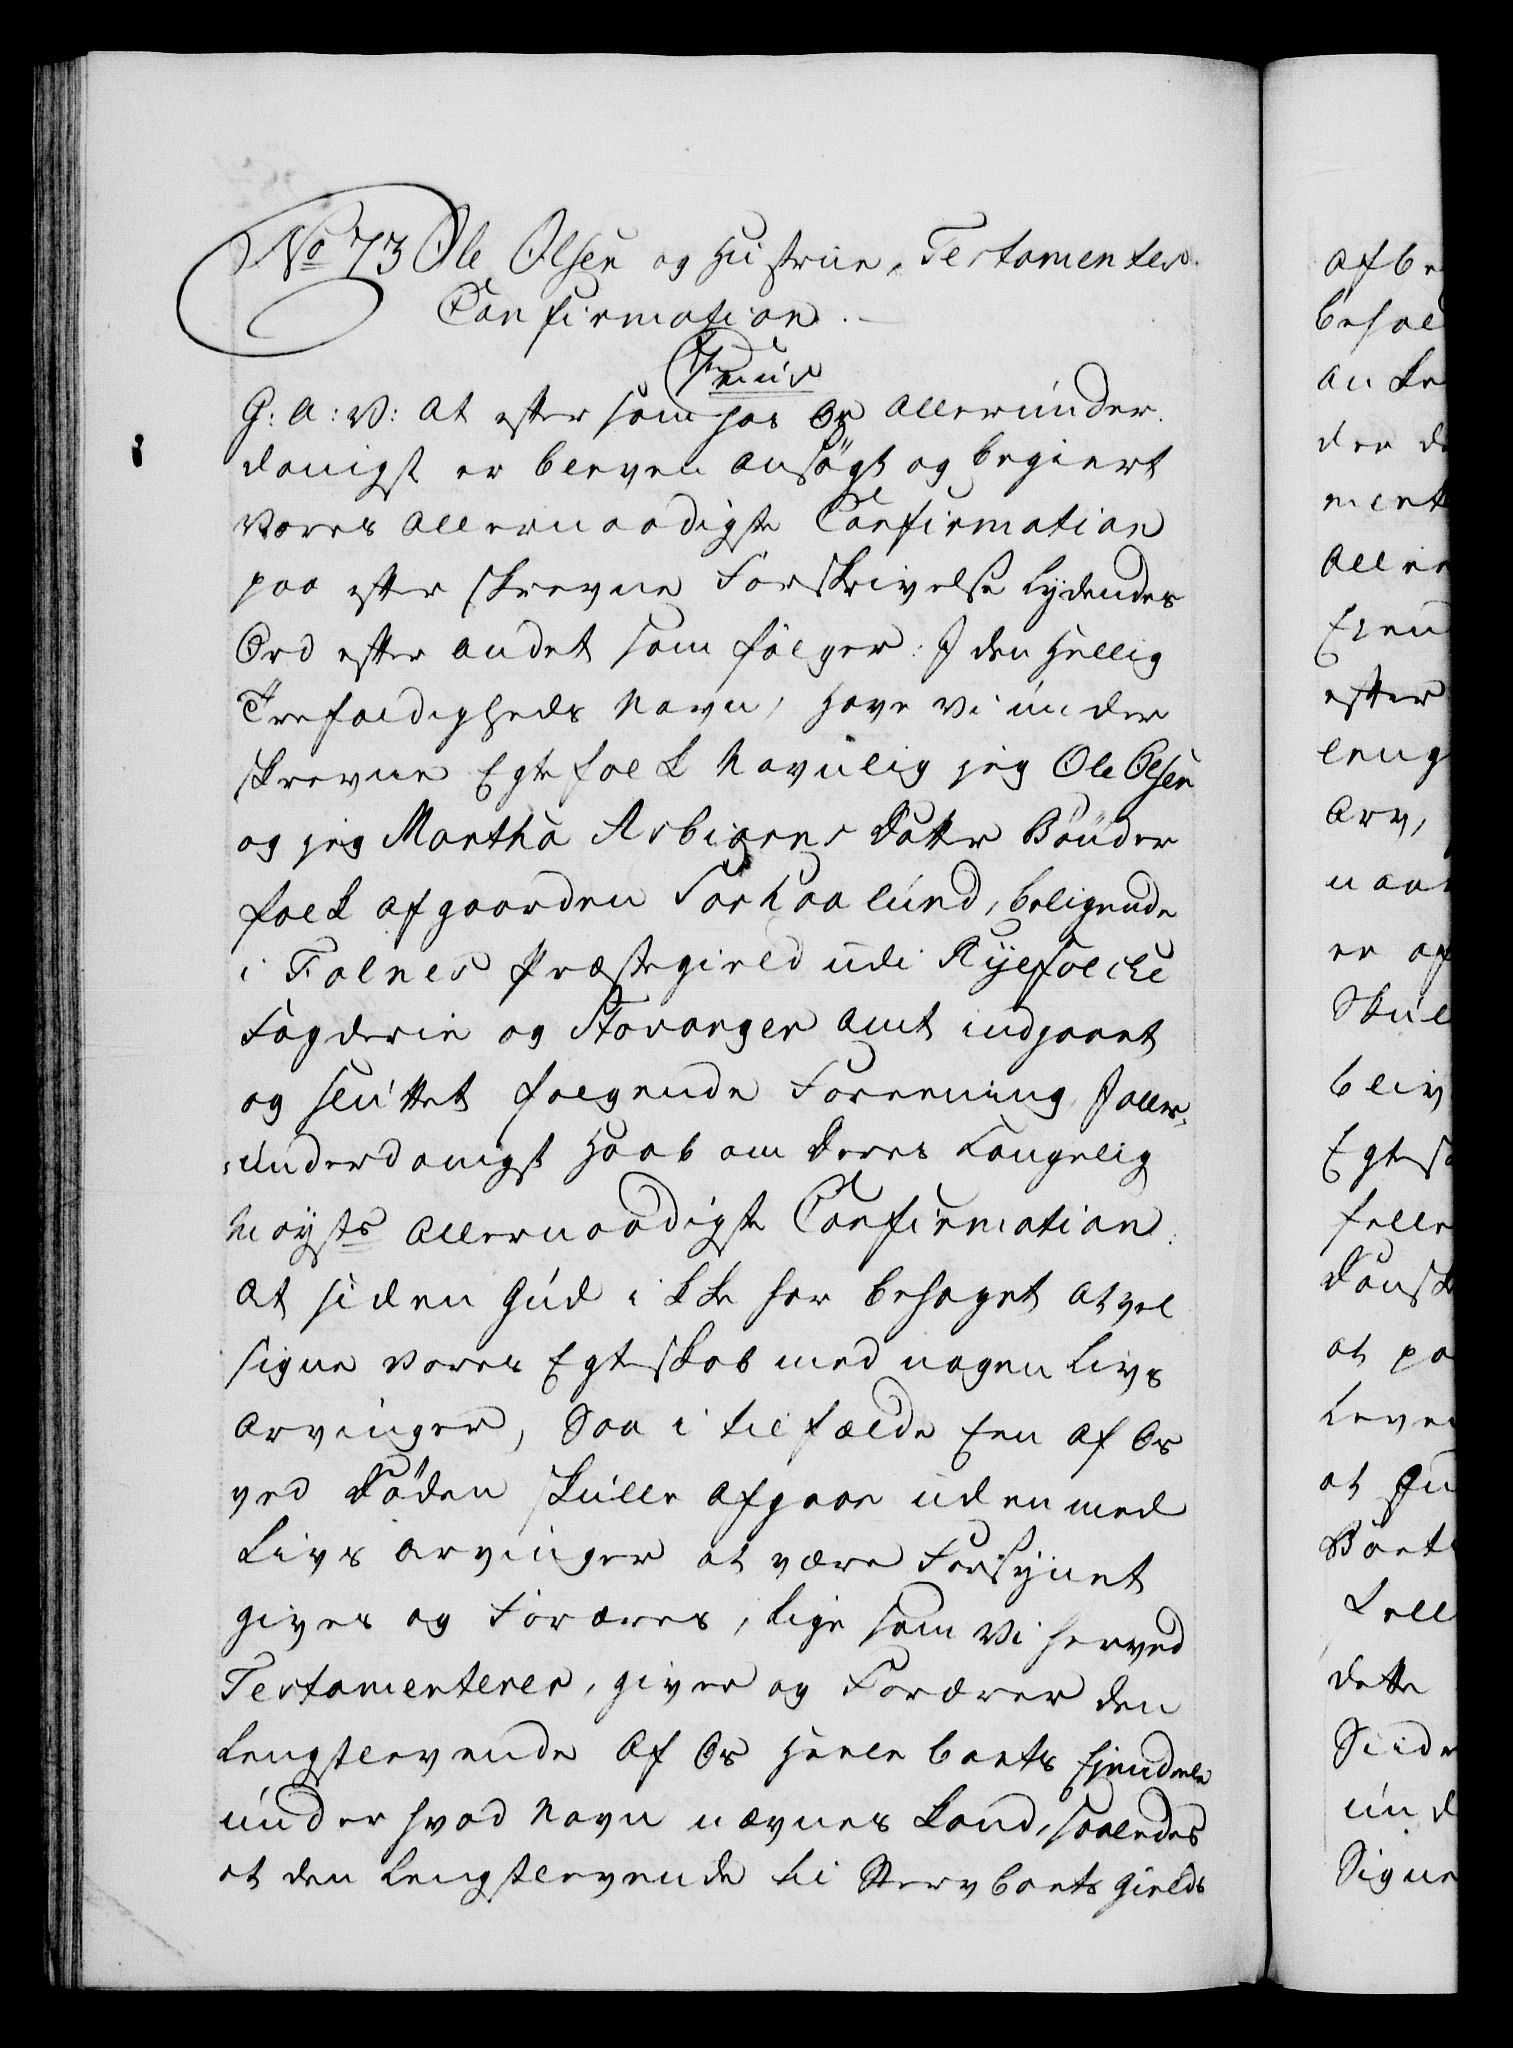 No 73 Ole Olsen og Hustrue, Testamentes
Confirmation.
G: A: V: At eftersom hos Os Allerunder-
danigst er bleven ansögt og begiert
Vores Allernaadigste Confirmation
paa efterskrevne Forskrivelse lydendes
Ord efter andet som fölger: I den Hellig
Trefoldigheds Navn, Have Vi under
skrevne Egtefolk Navnlig jeg Ole Olsen
og jeg Martha Asbiörns Datter Bönder
folk af gaarden Lund, beligende
i præstegield udi Ryefölche
Fogderie og Stavanger Amt indgaaet
og sluttet følgende Foreening I aller-
underdanigst Haab om Deres Kongelig
Mayts Allernaadigste Confirmation:
At siden Gud ikke har behaget at vel
signe vores Egteskab med nogen Livs
Arvinger, Saa i tilfælde Een af Os
ved Döden skulle afgaae uden med
Livs Arvinger at være Forsynet
gives og Foræres, lige som Vi herved
Testamenterer, giver og Forærer den
Lengstlevende af Os Heele boets Ejendele
under hvad Navn nævnes kand, saaledes
at den Lengstlevende til Stervboets Gields
afbe
behol
an
der d
ment
Aller
Eien
efter
leng
Arv,
naa
er af
Skul
bliv
Egtes
felle
Dansk
at pa
Leve
at Gu
Boet
dette
Side
und
Signe